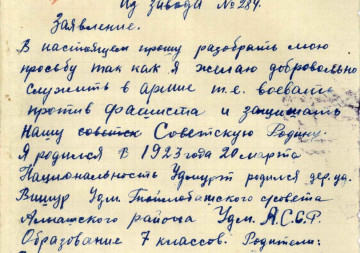 из завода № 284.
Заявление.
В настоящем прошу разобрать мою
просьбу так как я желаю добровольно
служить в армие т.е. воевать
против фашиста и защищать
нашу советск Советскую Родину.
Я родился в 1923 года 20 марта
Национальность Удмурт родился дер. уд.
Вишур Удм. сусовета
Алнашского района Удм. А.С.С.Р.
Образование 7 классов. Родители: